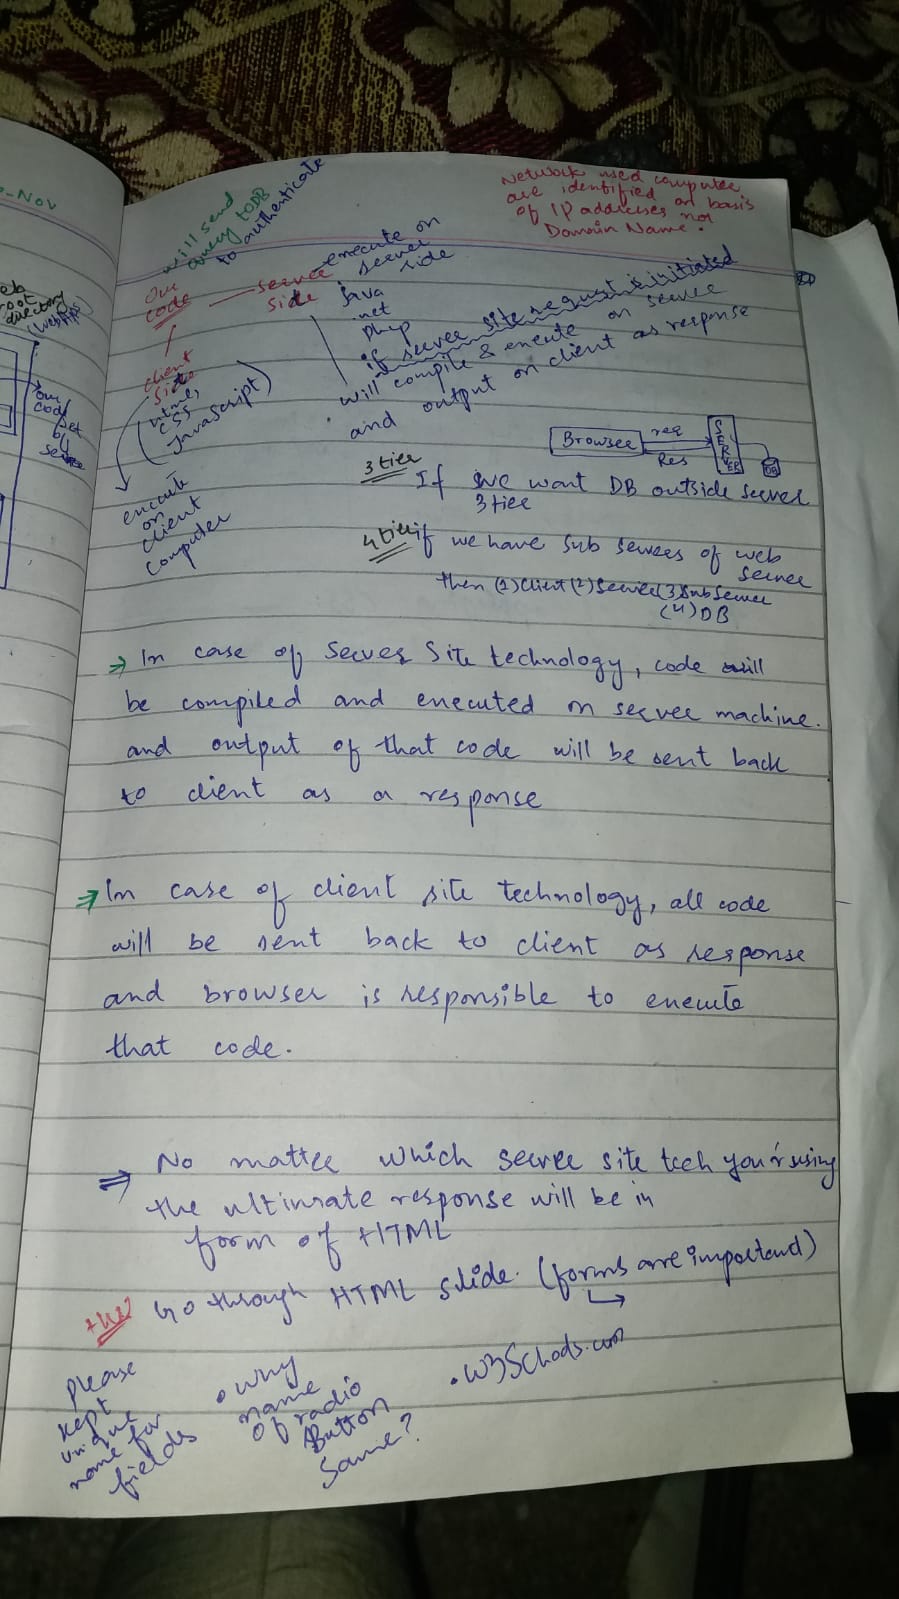 -Nov
root
directory
(WebApps)
our
code
set
by
server
will send
query to DB
to authenticate
Network used computer
are identified
on basis
of IP addresses not
Domain Name.
our
code
server
side
execute on
server
side
Java
.net
Php
client
side
html,
CSS
JavaScript
execute
on
client
computer
if server site request is initiated
will compile & execute on server
and output on client as response
Browser
req
Res
SERVER
DB
3 tier
If we want DB outside server
3 tier
4 tier if we have sub servers of web
server
then (1) Client (2) Server (3) Sub Server
(4) DB
⇒ In case of Server Site technology, code will
be compiled and executed on server machine.
and output of that code will be sent back
to client as a response
⇒ In case of client site technology, all code
will be sent back to client as response
and browser is responsible to execute
that code.
⇒ No matter which server site tech you'r using
the ultimate response will be in
form of HTML
Go through HTML slide. (forms are important)
. W3Schools.com
please
kept
unique
name for
fields
. why
name
of radio
Button
Same?